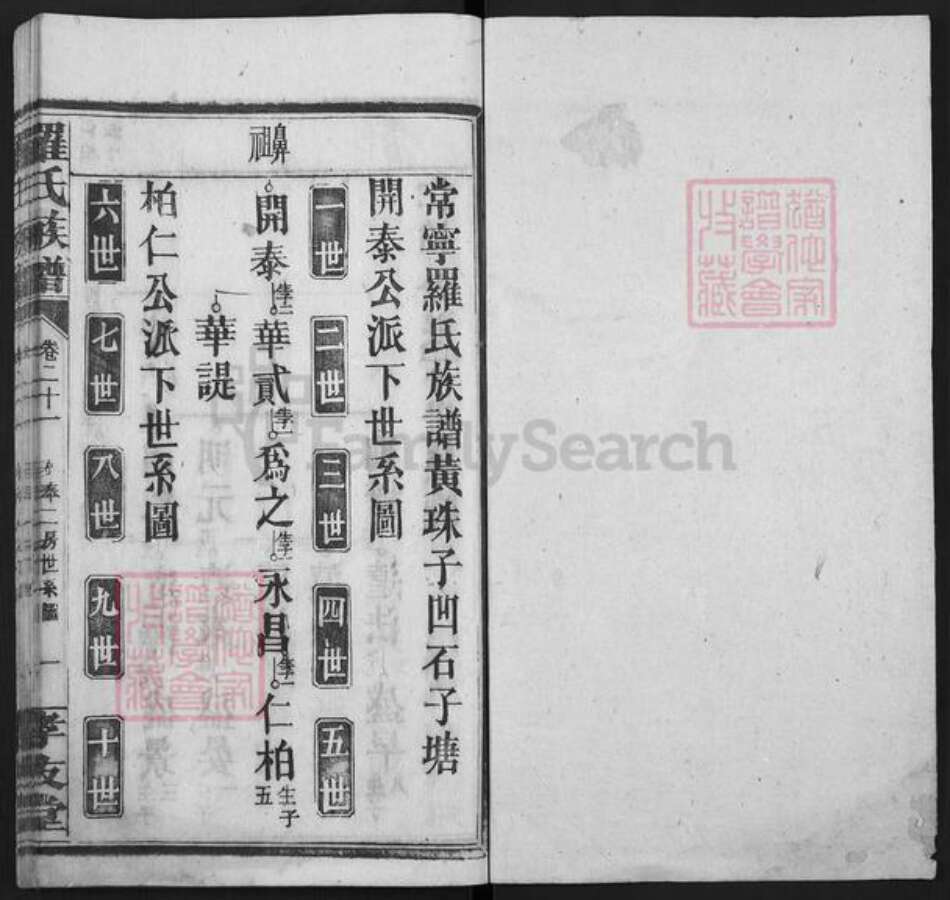 猶他家
譜學會
收藏
常寧羅氏族譜黃珠子凹石子塘
開泰公派下世系圖
一世 二世 三世 四世 五世
鼻祖
開泰 生二 華貳 生一 為之 生二 永昌 生一 仁柏 生子五
華諟
柏仁公派下世系圖
六世 七世 八世 九世 十世
羅氏族譜 卷二十一 二房世系圖 一 孝友堂
猶他家
譜學會
收藏
FamilySearch